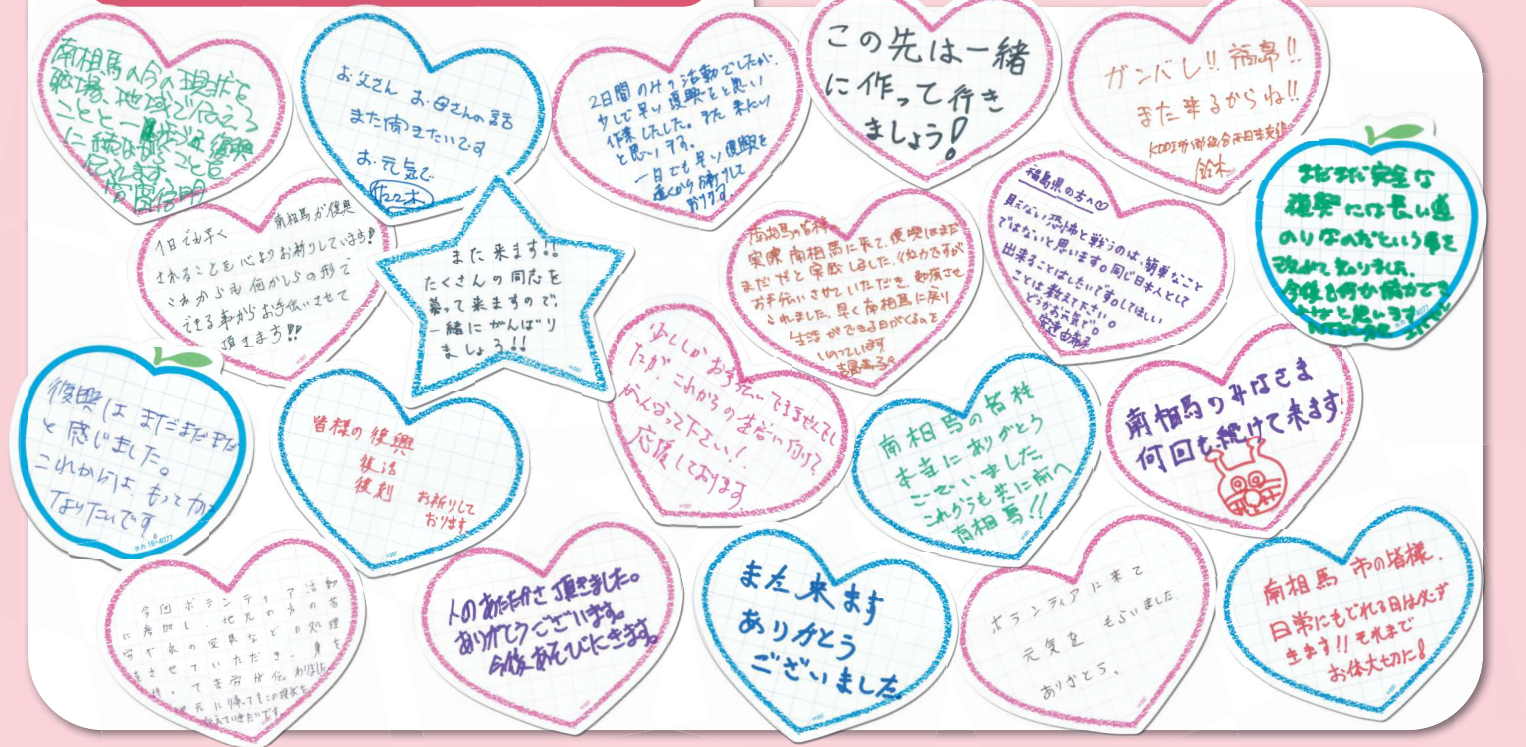 南相馬の今の現状を
職場、地域で伝える
こと
お父さん お母さんの話
また聞きたいです
お元気で
佐々木
2日間のみの活動でしたが、
少しで早い復興をと思い
作業したした。また来たい
と思います。
一日でも早い復興を
遠くから祈りして
おります
この先は一緒
に作って行き
ましょう!
ガンバレ!! 福島!!
また来るからね!!
鈴木
まだまだ完全な
復興には長い道
のりなのだという事を
改めて知りました。
今後も何か協力でき
ればと思います
1日でも早く 南相馬が復興
されることを心よりお祈りしています!
これからも何かしらの形で
できる事からお手伝いさせて
頂きます!!
また来ます!!
たくさんの同志を
募って来ますので、
一緒にがんばり
ましょう!!
南相馬の皆様
実際南相馬に来て、復興はまだ
まだだと実感しました。微力ですが
お手伝いさせていただき、勉強させ
られました。早く南相馬に戻り
生活ができる日がくるのを
いのっています
福島県の方へ♡
見えない恐怖と戦うのは、簡単なこと
ではないと思います。同じ日本人として
出来ることはしたいです。してほしい
ことは教えて下さい。
どうかお元気で。
復興はまだまだまだ
と感じました。
これからは、もっと力に
なりたいです。
タカ 16-4077
皆様の復興
復活
復刻
お祈りして
おります
少ししかお手伝いできませんでし
たが、これからの生活に向けて
がんばって下さい!!
応援しております
南相馬の皆様
本当にありがとう
ございました。
これからも共に前へ
南相馬!!
南相馬のみなさま
何回も続けて来ます
今回ボランティア活動
に参加し、地元の方の苦
をさせていただき、身を
人のあたたかさ頂きました。
ありがとうございます。
今後あそびにきます。
また来ます
ありがとう
ございました
ボランティアに来て
元気をもらいました。
ありがとう。
南相馬市の皆様。
日常にもどれる日は必ず
きます!! それまで
お体大切に!